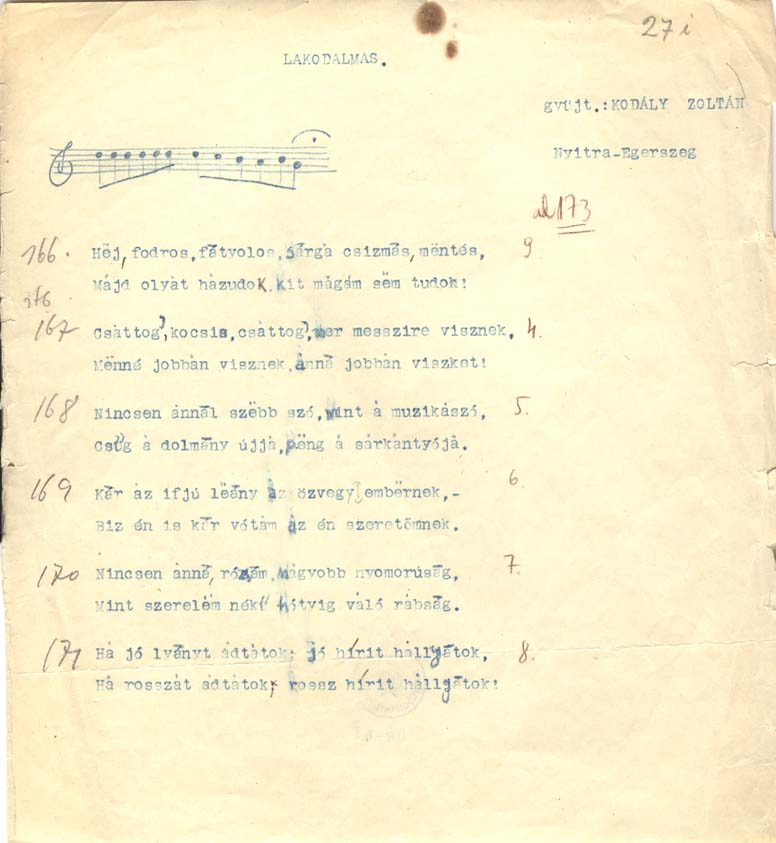 27 i
LAKODALMAS.
gyüjt.:KODÁLY ZOLTÁN
Nyitra-Egerszeg
ad 173
166. Hëj, fodros, fátyolos, sárgȧ csizmás, mëntés, 9
Mȧjd olyȧt hȧzudok, kit mȧgȧm sëm tudok!
176
167 Csȧttog', kocsis, csȧttog', mer messzire visznek, 4.
Mënné jobbȧn visznek, ȧnná jobbȧn viszket!
168 Nincsen ȧnnál szëbb szó, mint ȧ muzikȧszó, 5.
Csüg ȧ dolmány újjȧ, pëng ȧ sárkȧntyójȧ.
169 Kár ȧz ifjú lëány ȧz özvegy embërnek,- 6.
Biz én is kár vótȧm ȧz én szeretőmnek.
170 Nincsen ȧnná, rózȧm, nȧgyobb nyomorúság, 7.
Mint szerelëm nékű hótvig váló rȧbság.
171 Hȧ jó lványt ȧdtȧtok; jó hírit hȧlljátok, 8.
Hȧ rosszȧt ȧdtȧtok; rossz hírit hȧlljátok!